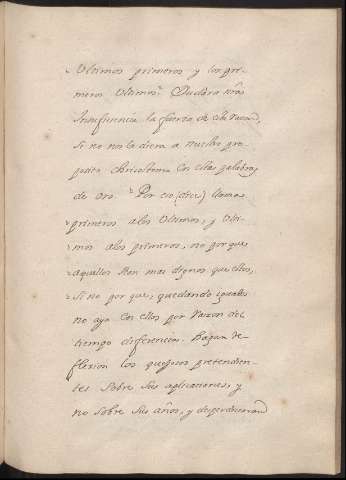 Ultimos primeros y los pri-
meros Ultimos. Dudara nrã
Insuficiencia la fuerza de esta razon,
si no nos la diera a nuestro pro-
posito Chrisostomo Con estas palabras
de oro. Por eso (dice) llama
primeros a los Ultimos, y Ulti-
mos a los primeros, no por que
aquellos sean mas dignos que estos,
si no por que, quedando iguales
no aya Con ellos por razon del
tiempo diferencia. Hagan Re-
flexion los quejosos pretendien-
tes sobre sus aplicaciones, y
no sobre sus años, y